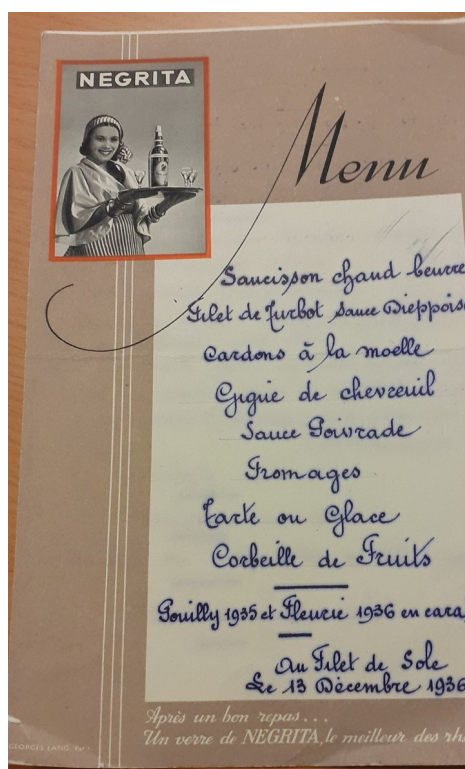 NEGRITA
Menu
Saucisson chaud beurre
Filet de Turbot Sauce Dieppoise
Cardons à la moelle
Gigue de chevreuil
Sauce Poivrade
Fromages
Tarte ou Glace
Corbeille de Fruits
Pouilly 1935 et Fleurie 1936 en cara
Au Filet de Sole
Le 13 Décembre 1936
Après un bon repas...
Un verre de NEGRITA, le meilleur des rh
GEORGES LANG, Paris